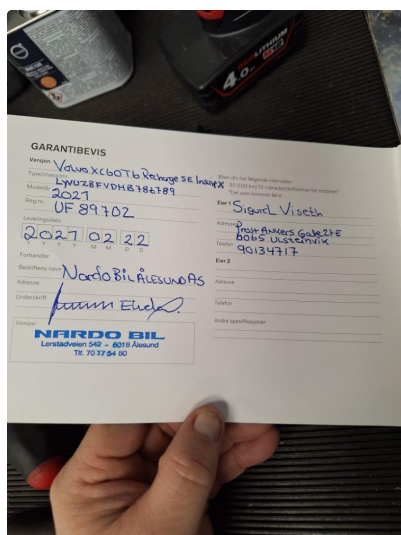 REDLITHIUM
4.0
GARANTIBEVIS
Versjon Volvo XC60 T6 Recharge SE Inscr X
Type/chassisnr.
Modellår 2021
Reg.nr. UF 89702
Leveringsdato
2021 02 22
Y Y Y Y M M D D
Forhandler
Bedriftens navn Nardo Bil Ålesund AS
Adresse
Underskrift
Stempel
NARDO BIL
Lerstadveien 542 – 6018 Ålesund
Tlf. 70 17 54 80
Bilen din har følgende intervaller:
30 000 km/12 måneder
*Det som kommer først
Eier 1 Sigurd Viseth
Adresse Prost Ankers Gate 27E
6065 Ulsteinvik
Telefon 90134717
Eier 2
Adresse
Telefon
Andre spesifikasjoner